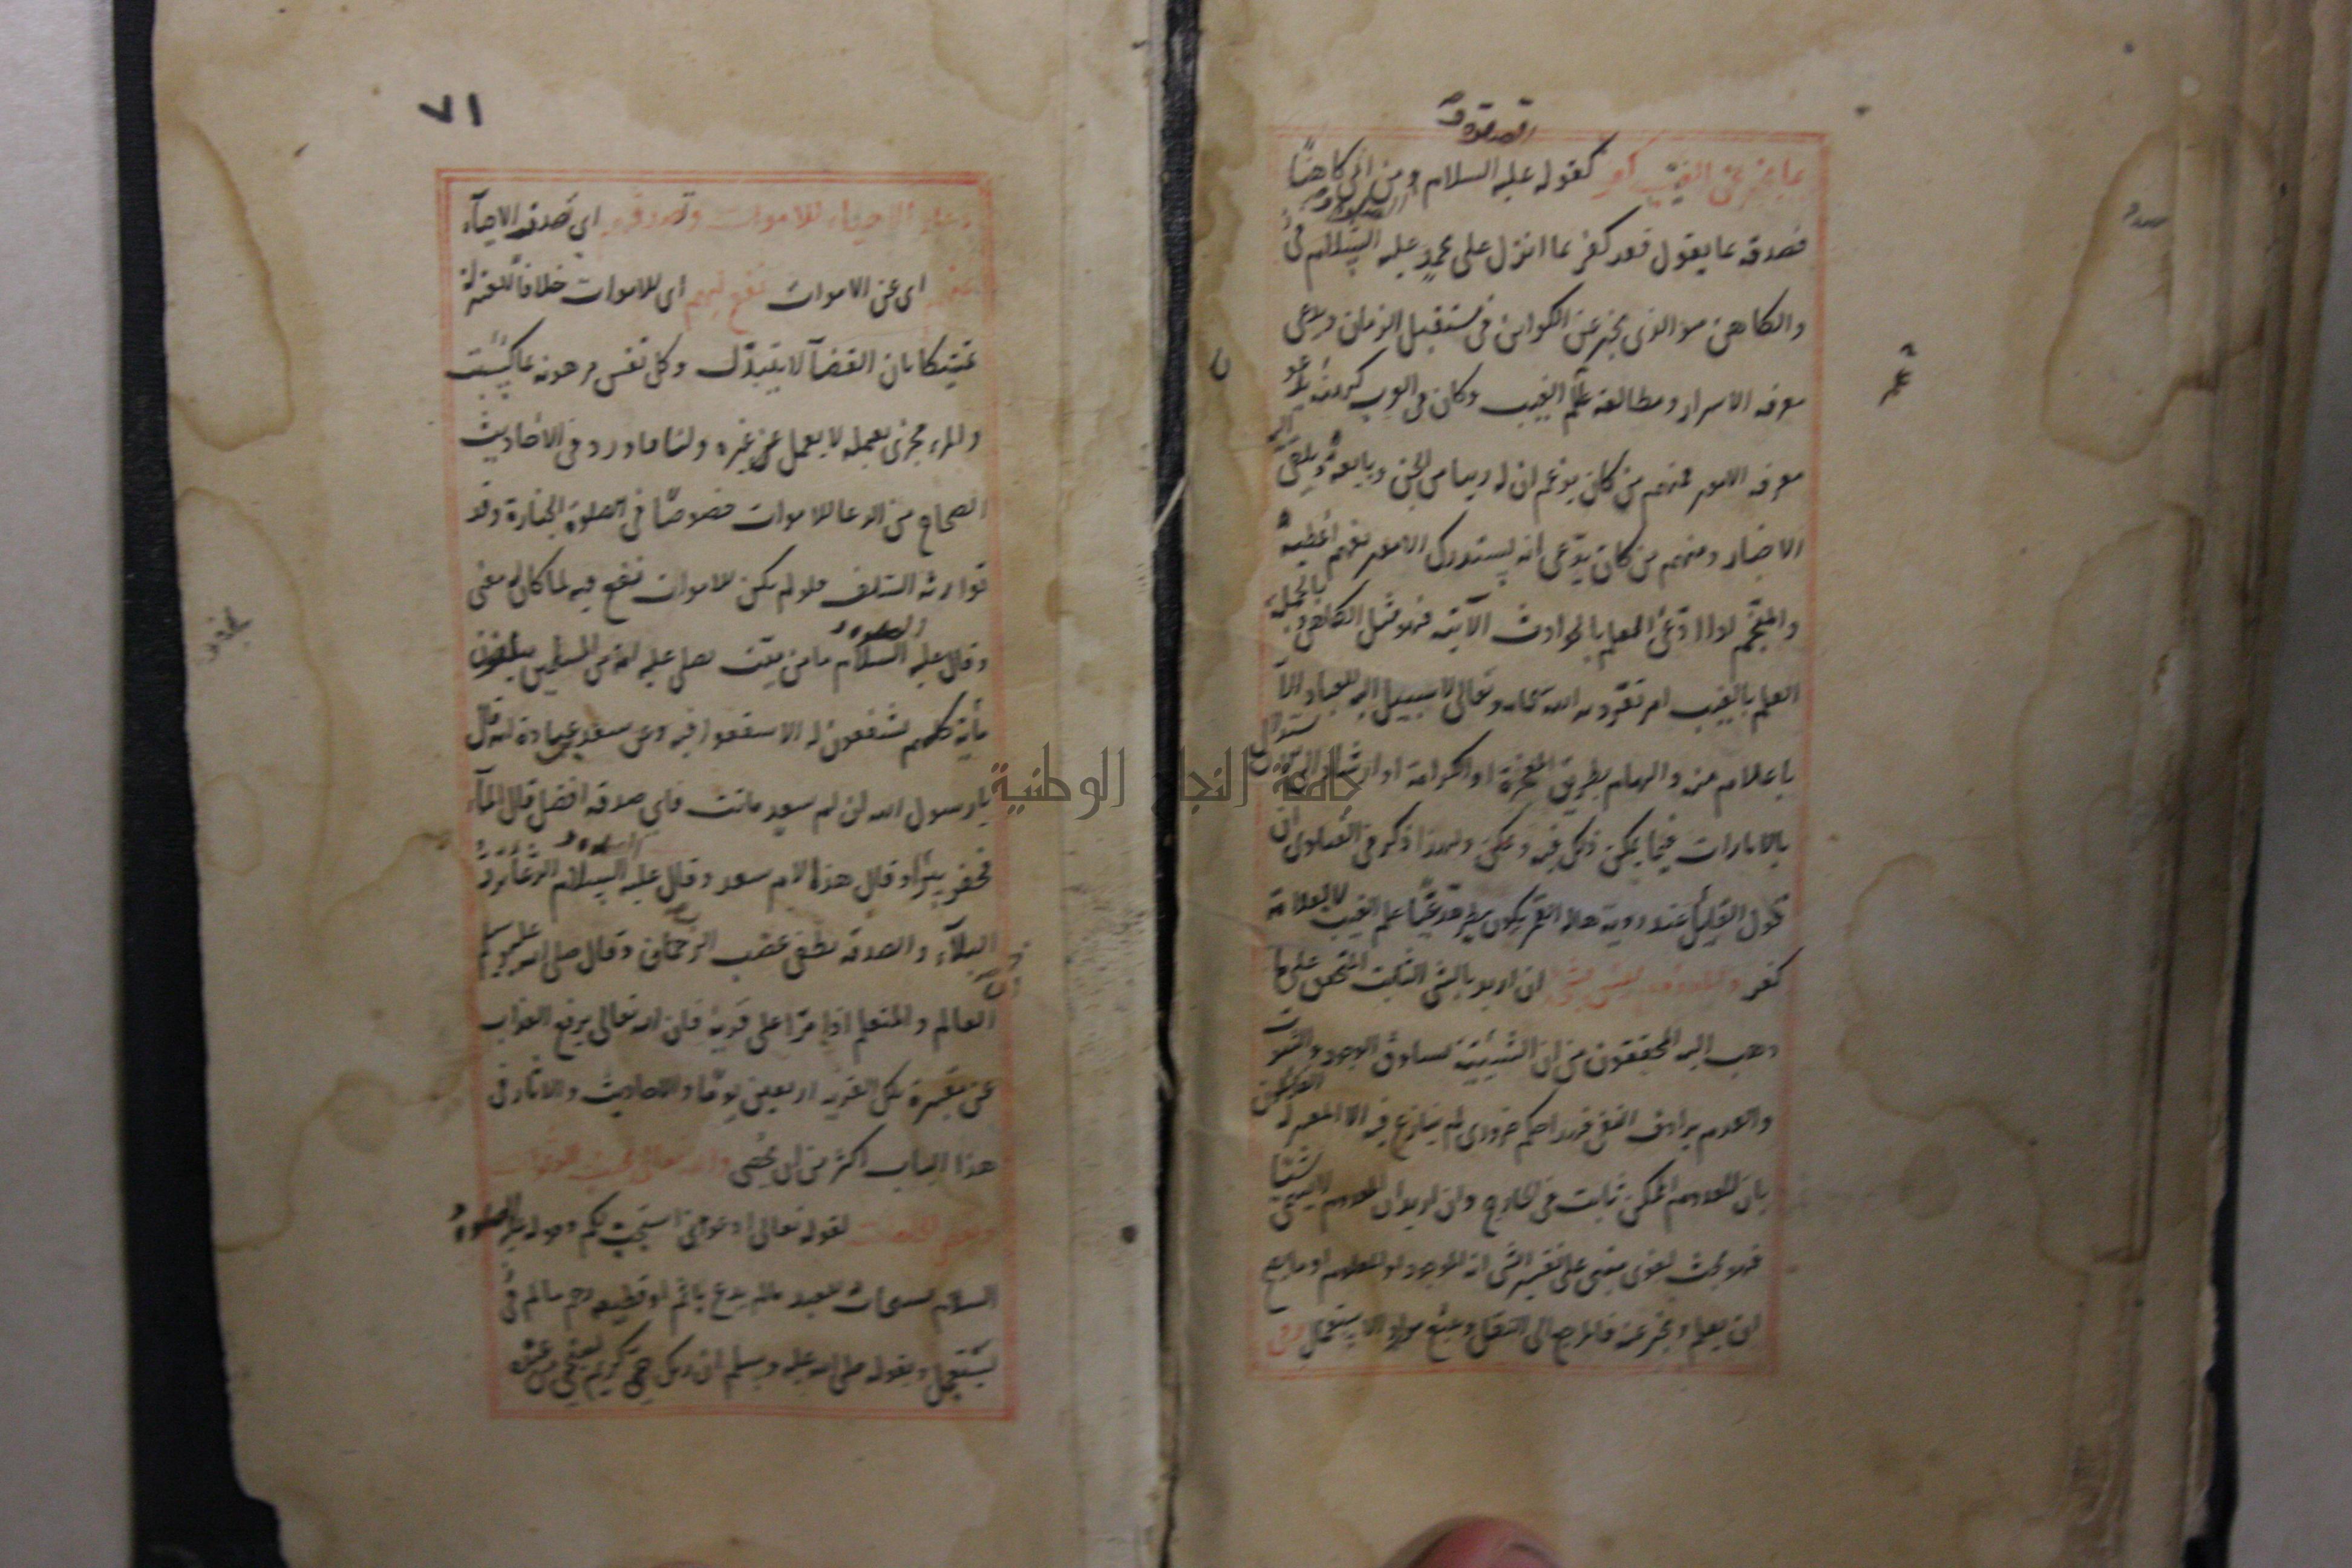 الصلوة و
بما يخبر عن الغيب كفر كقوله عليه السلام ومن اتى كاهنًا
فصدقه بما يقول فقد كفر بما انزل على محمد عليه السلام
والكاهن هو الذى يخبر عن الكوائن فى مستقبل الزمان ويدعى
معرفة الاسرار ومطالعة علم الغيب وكان فى العرب كهنة يدعو
معرفة الامور فمنهم من كان يزعم ان له رئيا من الجن وتابعة ويلقى اليه
الاخبار ومنهم من كان يدعى انه يستدرك الامور بفهم اعطيه
والمنجم اذا ادعى العلم بالحوادث الآتية فهو مثل الكاهن وبالجملة
العلم بالغيب امر تفرد به الله سبحانه وتعالى لا سبيل اليه للعباد الا
باعلام منه والهام بطريق المعجزة او الكرامة او ارشاد الى الاستدلال
بالامارات فيما يمكن ذلك فيه ولهذا ذكر فى الفتاوى ان
قول القائل عند رؤية هالة القمر يكون مطر مدعيًا علم الغيب لا بعلامة
كفر والمعدوم ليس بشئ ان اريد بالشئ الثابت المتحقق على ما
ذهب اليه المحققون من ان الشيئية تساوق الوجود والثبوت
والعدم يرادف النفى فهذا حكم ضرورى لم ينازع فيه الا المعتزلة القائلون
بان المعدوم الممكن ثابت فى الخارج وان اريد ان المعدوم لا يسمى شيئا
فهو بحث لغوى مبنى على تفسير الشئ انه الموجود او المعلوم او ما يصح
ان يعلم ويخبر عنه فالمرجع الى النقل وتتبع موارد الاستعمال وفى
٧١
دعاء الاحياء للاموات وتصدقهم اى تصدق الاحياء
عنهم اى عن الاموات نفع لهم اى للاموات خلافًا للمعتزلة
تمسكا بان القضآ لا يتبدل وكل نفس مرهونة بما كسبت
والمرء مجزى بعمله لا بعمل غيره ولنا ما ورد فى الاحاديث
الصحاح من الدعا للاموات خصوصًا فى الصلوة الجنازة وقد
توارثه السلف فلو لم يكن للاموات نفع فيه لما كان له معنى
وقال عليه الصلوة و السلام ما من ميت يصلى عليه امة من المسلمين يبلغون
مأية كلهم يشفعون له الا شفعوا فيه وعن سعد بن عبادة انه قال
يا رسول الله ان ام سعد ماتت فاى صدقة افضل قال المآء
فحفر بيرًا وقال هذه لام سعد وقال عليه الصلوة و السلام الدعآ يرد
البلآء والصدقة تطفى غضب الرحمان وقال صلى الله عليه وسلم ان
العالم والمتعلم اذا مرّا على قرية فان الله تعالى يرفع العذاب
عن مقبرة تلك القرية اربعين يومًا والاحاديث والاثار فى
هذا الباب اكثر من ان يحصى والله تعالى يجيب الدعوات
ويقضى الحاجات لقوله تعالى ادعونى استجب لكم وقوله عليه الصلوة و
السلام يستجاب للعبد مالم يدع باثم او قطيعة رحم مالم
يستعجل ولقوله صلى الله عليه وسلم ان ربكم حى كريم يستحى من عبده